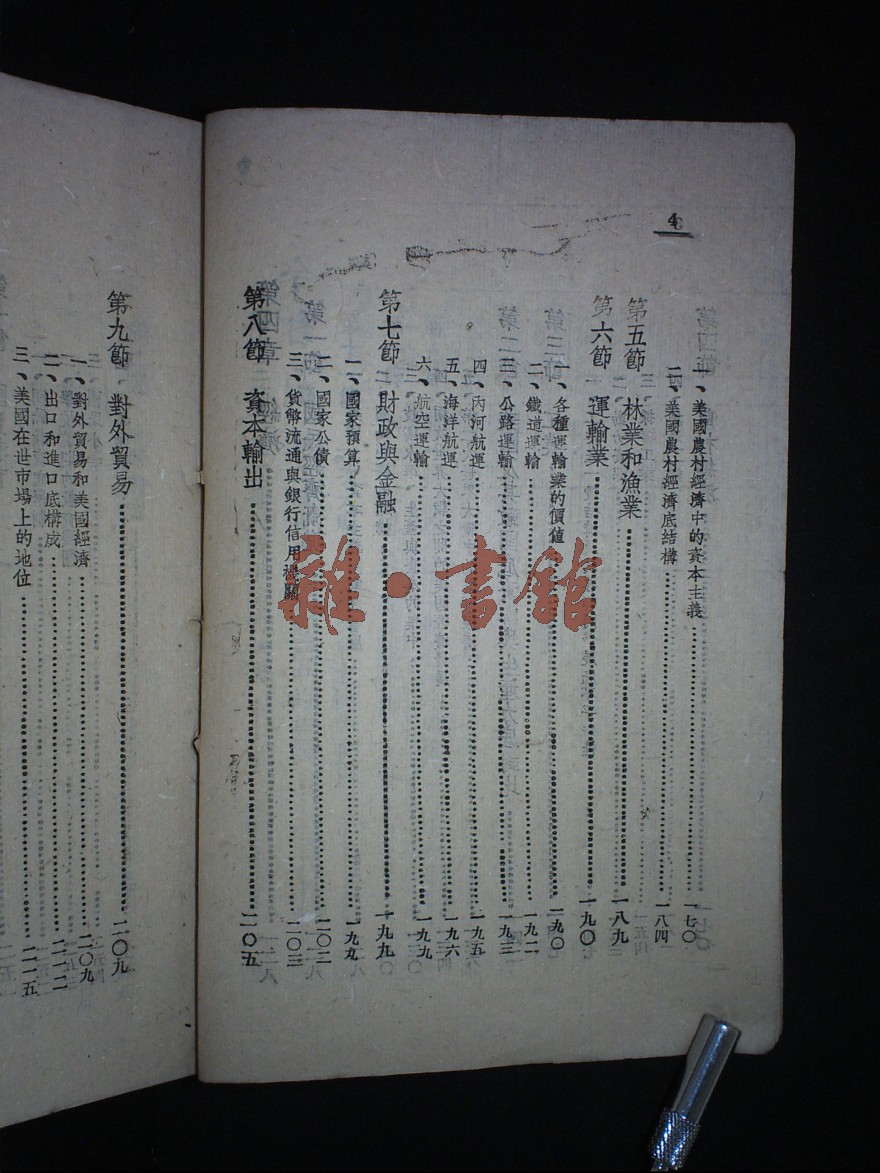 4
一、美國農村經濟中的資本主義 一七〇
二、美國農村經濟底結構 一八四
第五節 林業和漁業 一八九
第六節 運輸業 一九〇
一、各種運輸業的價值 一九〇
二、鐵道運輸 一九二
三、公路運輸 一九三
四、內河航運 一九五
五、海洋航運 一九六
六、航空運輸 一九九
第七節 財政與金融 一九九
一、國家預算 一九九
二、國家公債 二〇二
三、貨幣流通與銀行信用機關 二〇三
第八節 資本輸出 二〇五
第九節 對外貿易 二〇九
一、對外貿易和美國經濟 二〇九
二、出口和進口底構成
三、美國在世市場上的地位 二一五
雜·書館